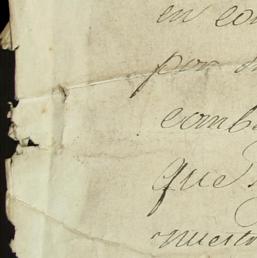 en con
por
comb
que
nuestr